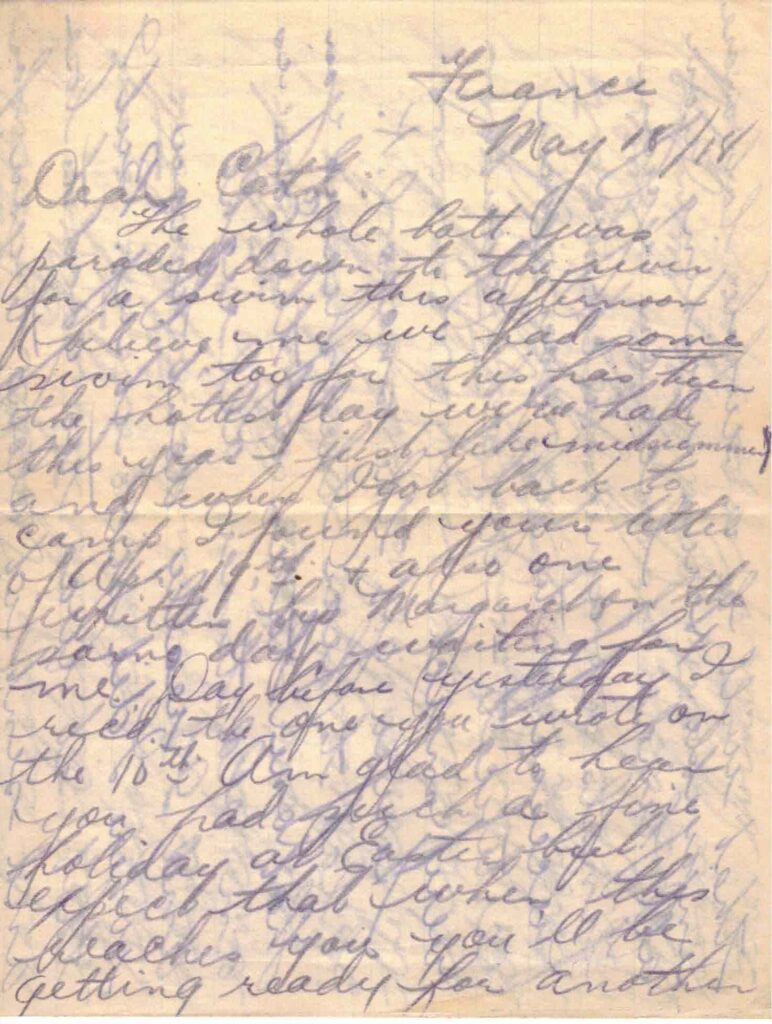 France
May 18/18
Dear Cath:
The whole batt. was
paraded down to the river
for a swim this afternoon
(believe me we had some
swim too for this has been
the hottest day we've had
this year - just like midsummer)
and when I got back to
camp I found your letter
of Ap. 19th. + also one
written by Margaret on the
same day waiting for
me. Day before yesterday I
rec'd the one you wrote on
the 10th. Am glad to hear
you had such a fine
holiday at Easter but
expect that when this
reaches you you'll be
getting ready for another